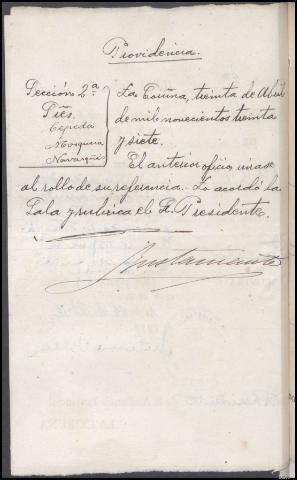 Providencia.
Sección 2ª
Sres.
Cepeda
Mosquera
Navarrete
La Coruña, treinta de Abril
de mil novecientos treinta
y siete.
El anterior oficio unase
al rollo de su referencia. Lo acordó la
Sala y rubrica el Sr. Presidente.
Bustamante